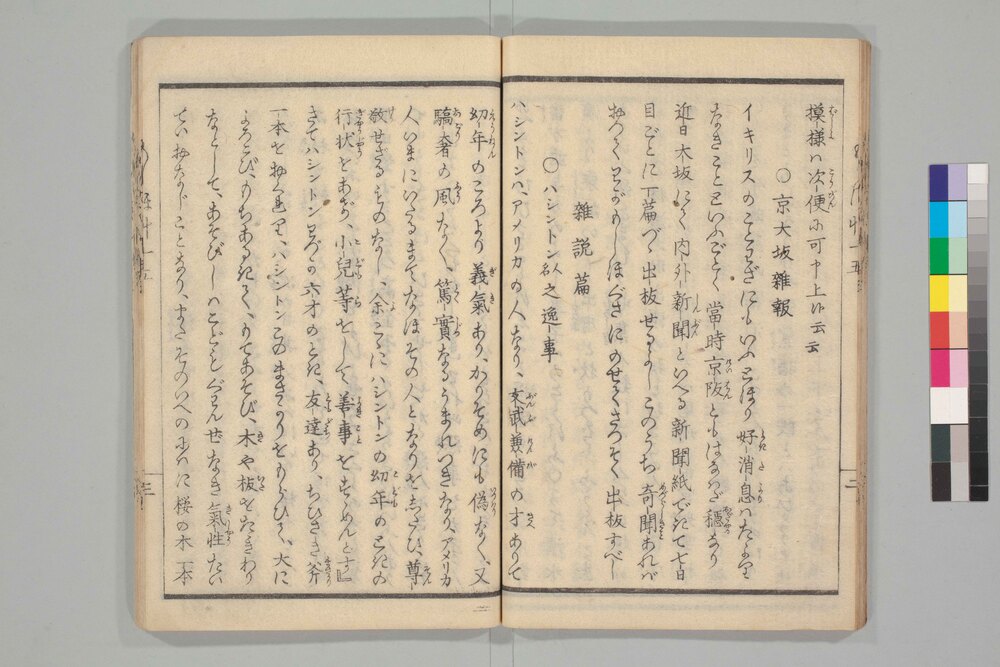 模様ハ次便に可申上候云云
○京大坂雑報
イキリスのことわざにもいふとほり好消息ハたより
なきことといふごとく當時京阪ともはなはだ穏なり
近日大坂にて内外新聞といへる新聞紙できて七日
目ごとに一篇づヽ出板せるよしこのうち奇聞あれバ
おひ〳〵わがもしほぐさにのせてさつそく出板すべし
雜説篇
○ハシントン人名之逸事
ハシントンハ、アメリカの人なり、文武兼備の才ありて
幼年のころより義氣あり、かりそめにも偽なく、又
驕奢の風なく、篤實なるうまれつきなり、アメリカ
人いまにいたるまでなほその人となりをしたひ、尊
敬せざるものなし、余こヽにハシントンの幼年のときの
行状をあげ、小兒等をして善事をすゝめんとす』
さてハシントンわづか六才のとき、友達より、ちひさき斧
一本をおくれり、ハシントンこのまさかりをもらひて、大に
よろこび、もちあるきて、つてあそび、木や板をたヽきわり
などして、あそびしハこどもとぜんせなき氣性たい
ていおなじことなり、またそのいへのにはに桜の木一本